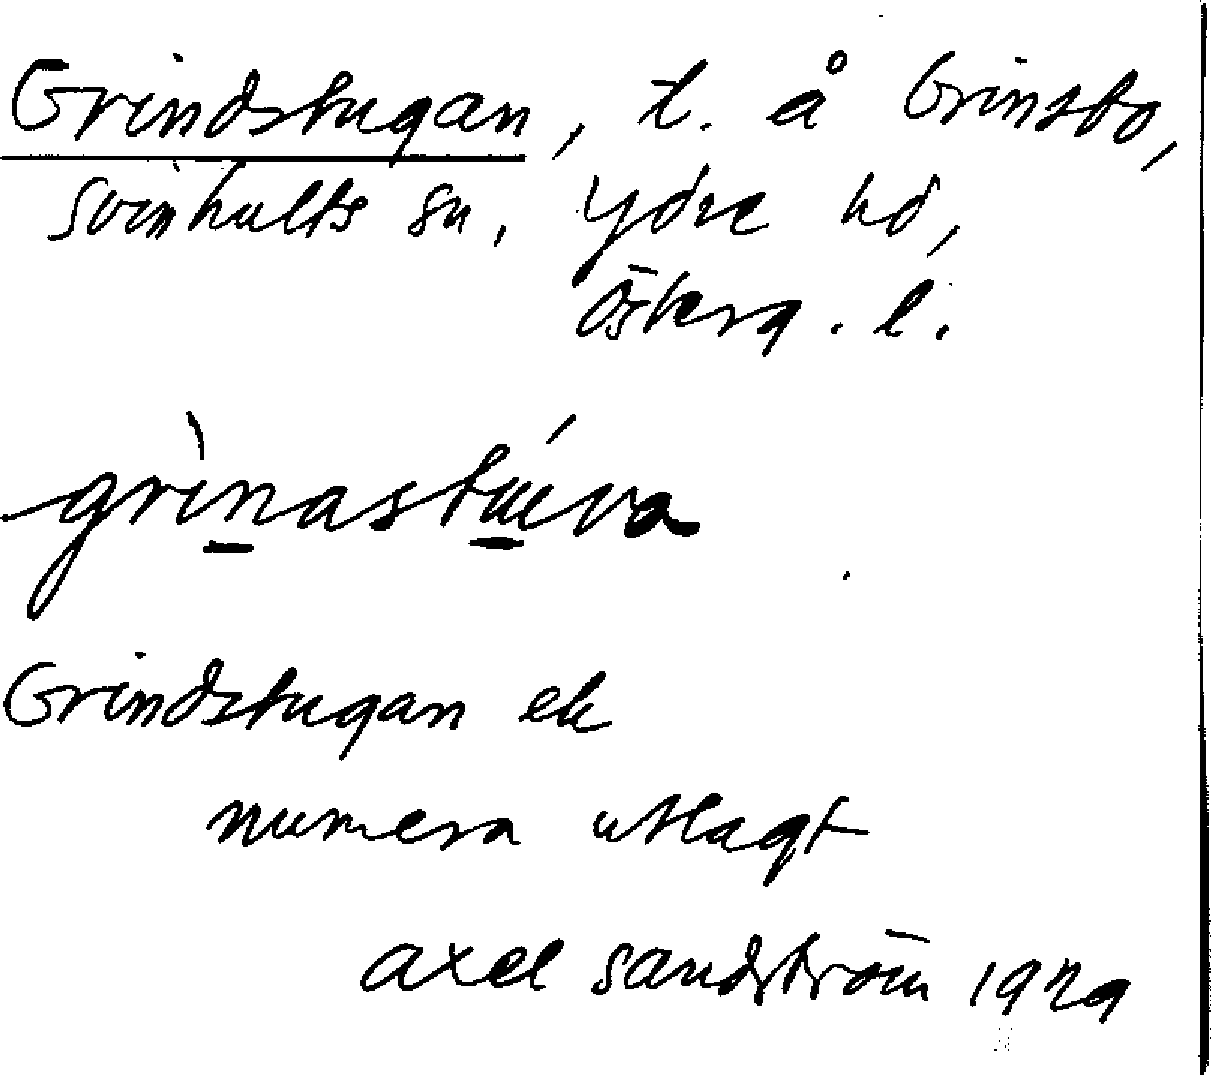 Grindstugan, t. å Grinsbo,
Svinhults sn, Ydre hd,
Österg. l.
grìnastúeva
Grindstugan ek
numera utlagt
Axel Sandström 1929